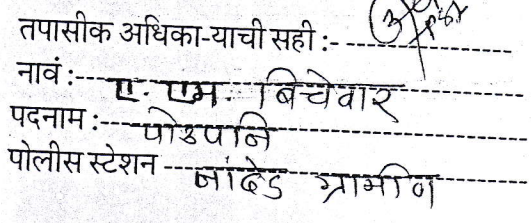 तपासीक अधिका-याची सही :-
नावं :- ए. एम. बिचेवार
पदनाम :- पोउपनि
पोलीस स्टेशन - नांदेड ग्रामीण